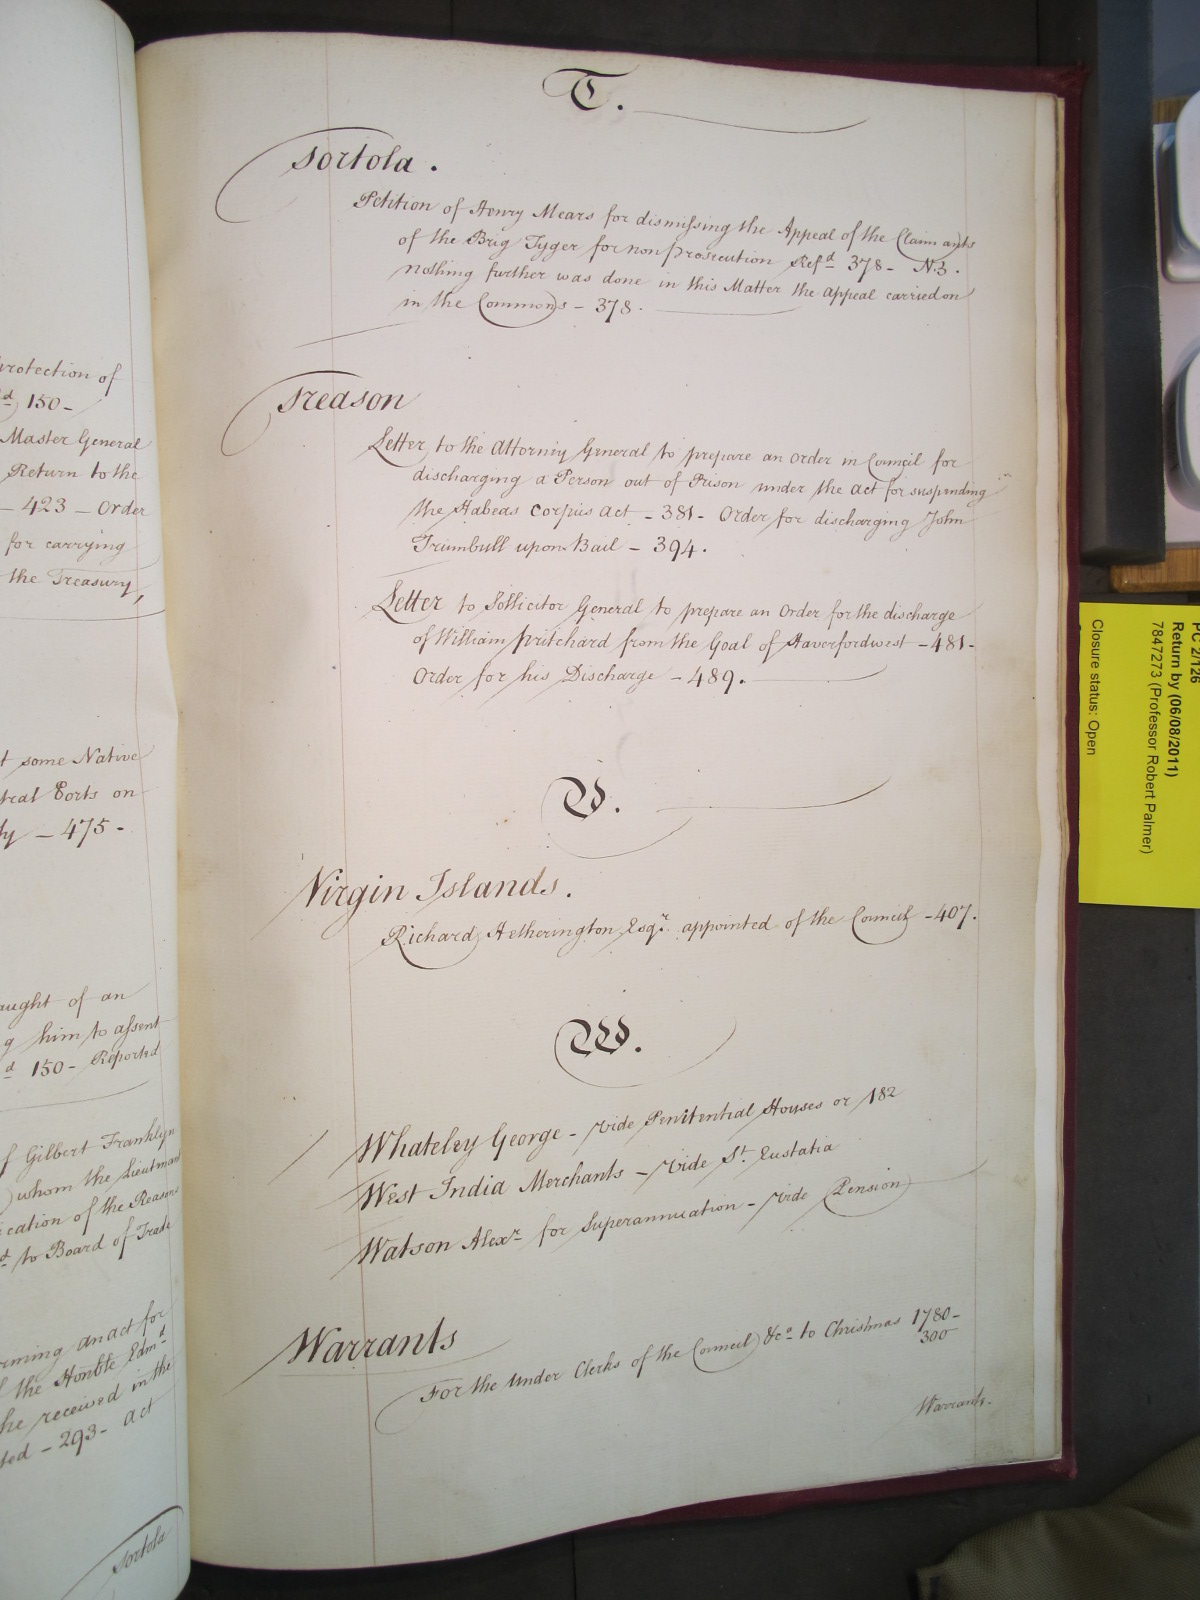 protection of
d 150-
Master General
Return to the
- 423 - Order
for carrying
the Treasury,
some Native
Ports on
- 475 -
aught of an
him to assent
d 150 - Reported
Gilbert Franklyn
whom the Lieutenant
cation of the Reasons
to Board of Trade
an act for
the Honble Edmd
he received in the
- 293 - Act
Tortola
T.
Tortola.
Petition of Henry Mears for dismissing the Appeal of the Claimants
of the Brig Tyger for non prosecution Refd 378 - N.3.
nothing further was done in this Matter the Appeal carried on
in the Commons - 378.
Treason
Letter to the Attorney General to prepare an Order in Council for
discharging a Person out of Prison under the Act for suspending
the Habeas Corpus Act - 381 - Order for discharging John
Trumbull upon Bail - 394.
Letter to Sollicitor General to prepare an Order for the discharge
of William Pritchard from the Goal of Haverfordwest - 481 -
Order for his Discharge - 489.
V.
Virgin Islands.
Richard Hetherington Esqr. appointed of the Council - 407.
W.
Whateley George - vide Penitential Houses or 182
West India Merchants - vide St. Eustatia
Watson Alexr for Superannuation - vide Pension
Warrants
For the Under Clerks of the Council &ca to Christmas 1780 -
300
Warrants.
PC 2/126
Return by (06/08/2011)
7847273 (Professor Robert Palmer)
Closure status: Open